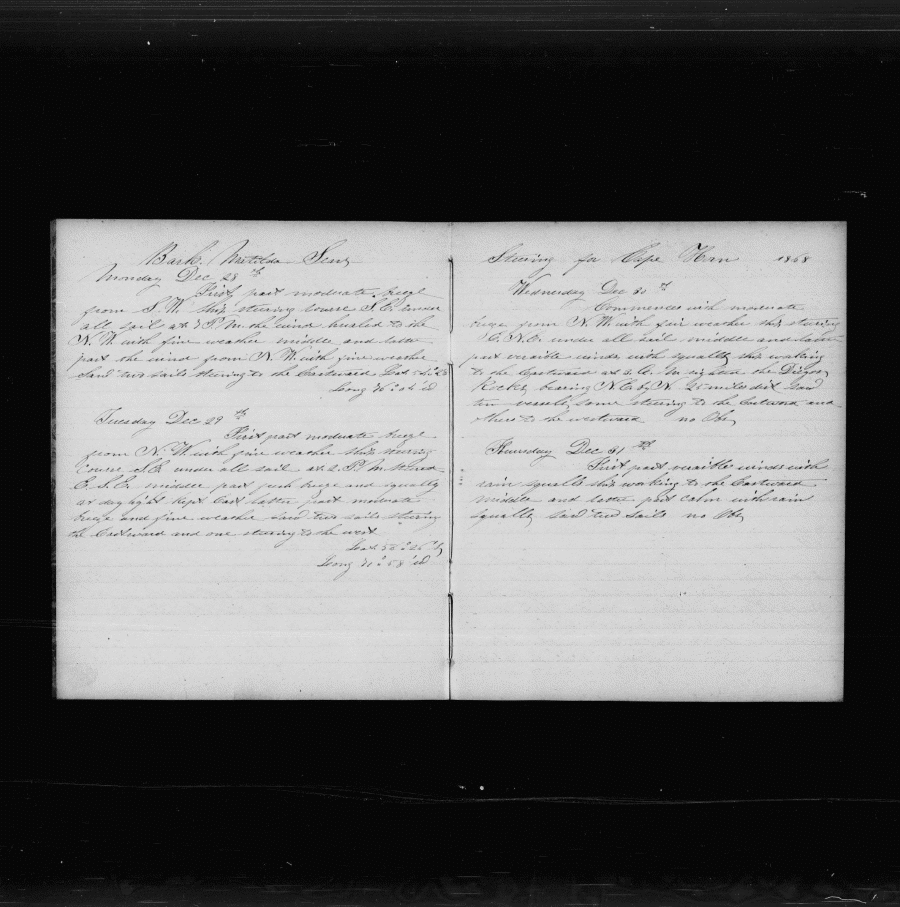 Bark Matilda Sears
Monday Dec 28th
First part moderate breze
from S.W. ship steering course S.E. under
all sail at 8 P.M. the wind hauled to the
N.W. with fine weather middle and latter
part the wind from N.W. with fine weather
Saw two sails steering to the Eastward Lat
Long 76
Tuesday Dec 29th
First part moderate breze
from N.W. with fine weather ship steering
course S.E. under all sail at 2 P.M. steered
E.S.E. middle part fresh breze and squally
at daylight kept East latter part moderate
breze and fine weather saw two sails steering
the Eastward and one steering to the west
Lat 56° 26' S
Long 71° 58' W
Steering for Cape Horn 1868
Wednesday Dec 30th
Commences with moderate
breze from N.W. with fine weather ship steering
E.N.E. under all sail middle and latter
part varible winds with squally ship working
to the Eastward at 3 A.M. sighted the Diegos
Rocks bearing N.E. by N. 25 miles dist Saw
ten vessels some steering to the Eastward and
others to the westward no Obs
Thursday Dec 31st
First part varible winds with
rain squalls ship working to the Eastward
middle and latter part calm with rain
squalls saw two sails no Obs